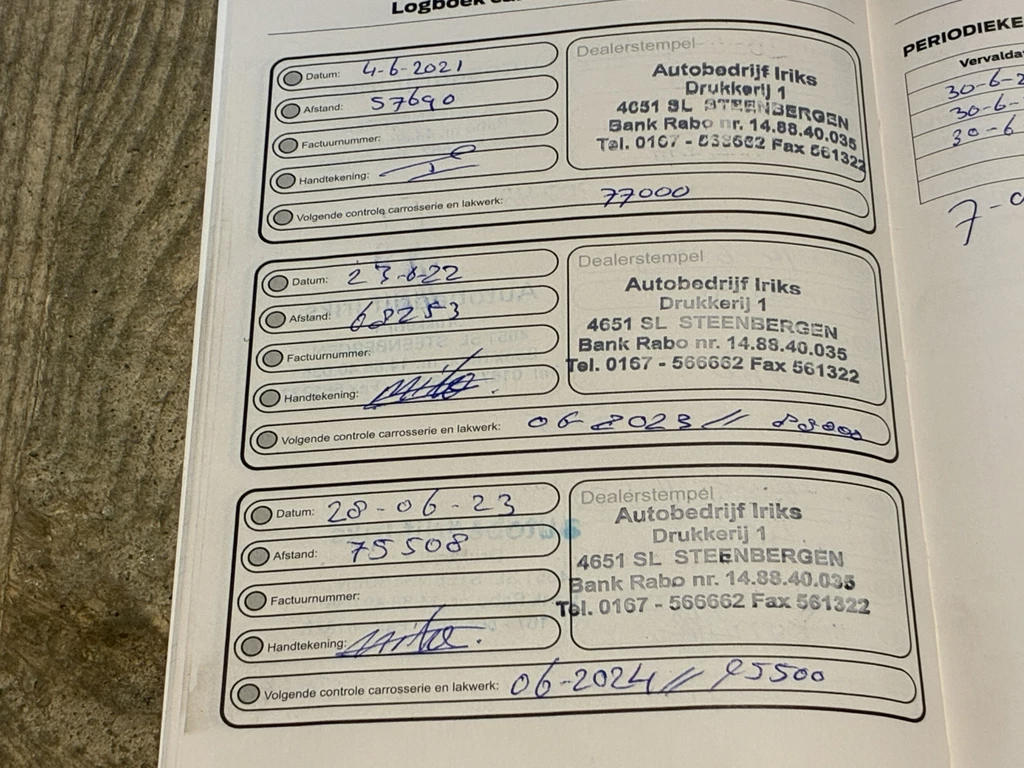 Logboek
Datum: 4-6-2021
Afstand: 57690
Factuurnummer:
Handtekening:
Volgende controle carrosserie en lakwerk: 77000
Dealerstempel
Autobedrijf Iriks
Drukkerij 1
4651 SL STEENBERGEN
Bank Rabo nr. 14.88.40.035
Tel. 0167 - 566662 Fax 561322
Datum: 23-6-22
Afstand: 68253
Factuurnummer:
Handtekening:
Volgende controle carrosserie en lakwerk: 06-2023 //
Dealerstempel
Autobedrijf Iriks
Drukkerij 1
4651 SL STEENBERGEN
Bank Rabo nr. 14.88.40.035
Tel. 0167 - 566662 Fax 561322
Datum: 28-06-23
Afstand: 75508
Factuurnummer:
Handtekening:
Volgende controle carrosserie en lakwerk: 06-2024 // 95500
Dealerstempel
Autobedrijf Iriks
Drukkerij 1
4651 SL STEENBERGEN
Bank Rabo nr. 14.88.40.035
Tel. 0167 - 566662 Fax 561322
PERIODIEKE
30-6-2
30-6-
30-6